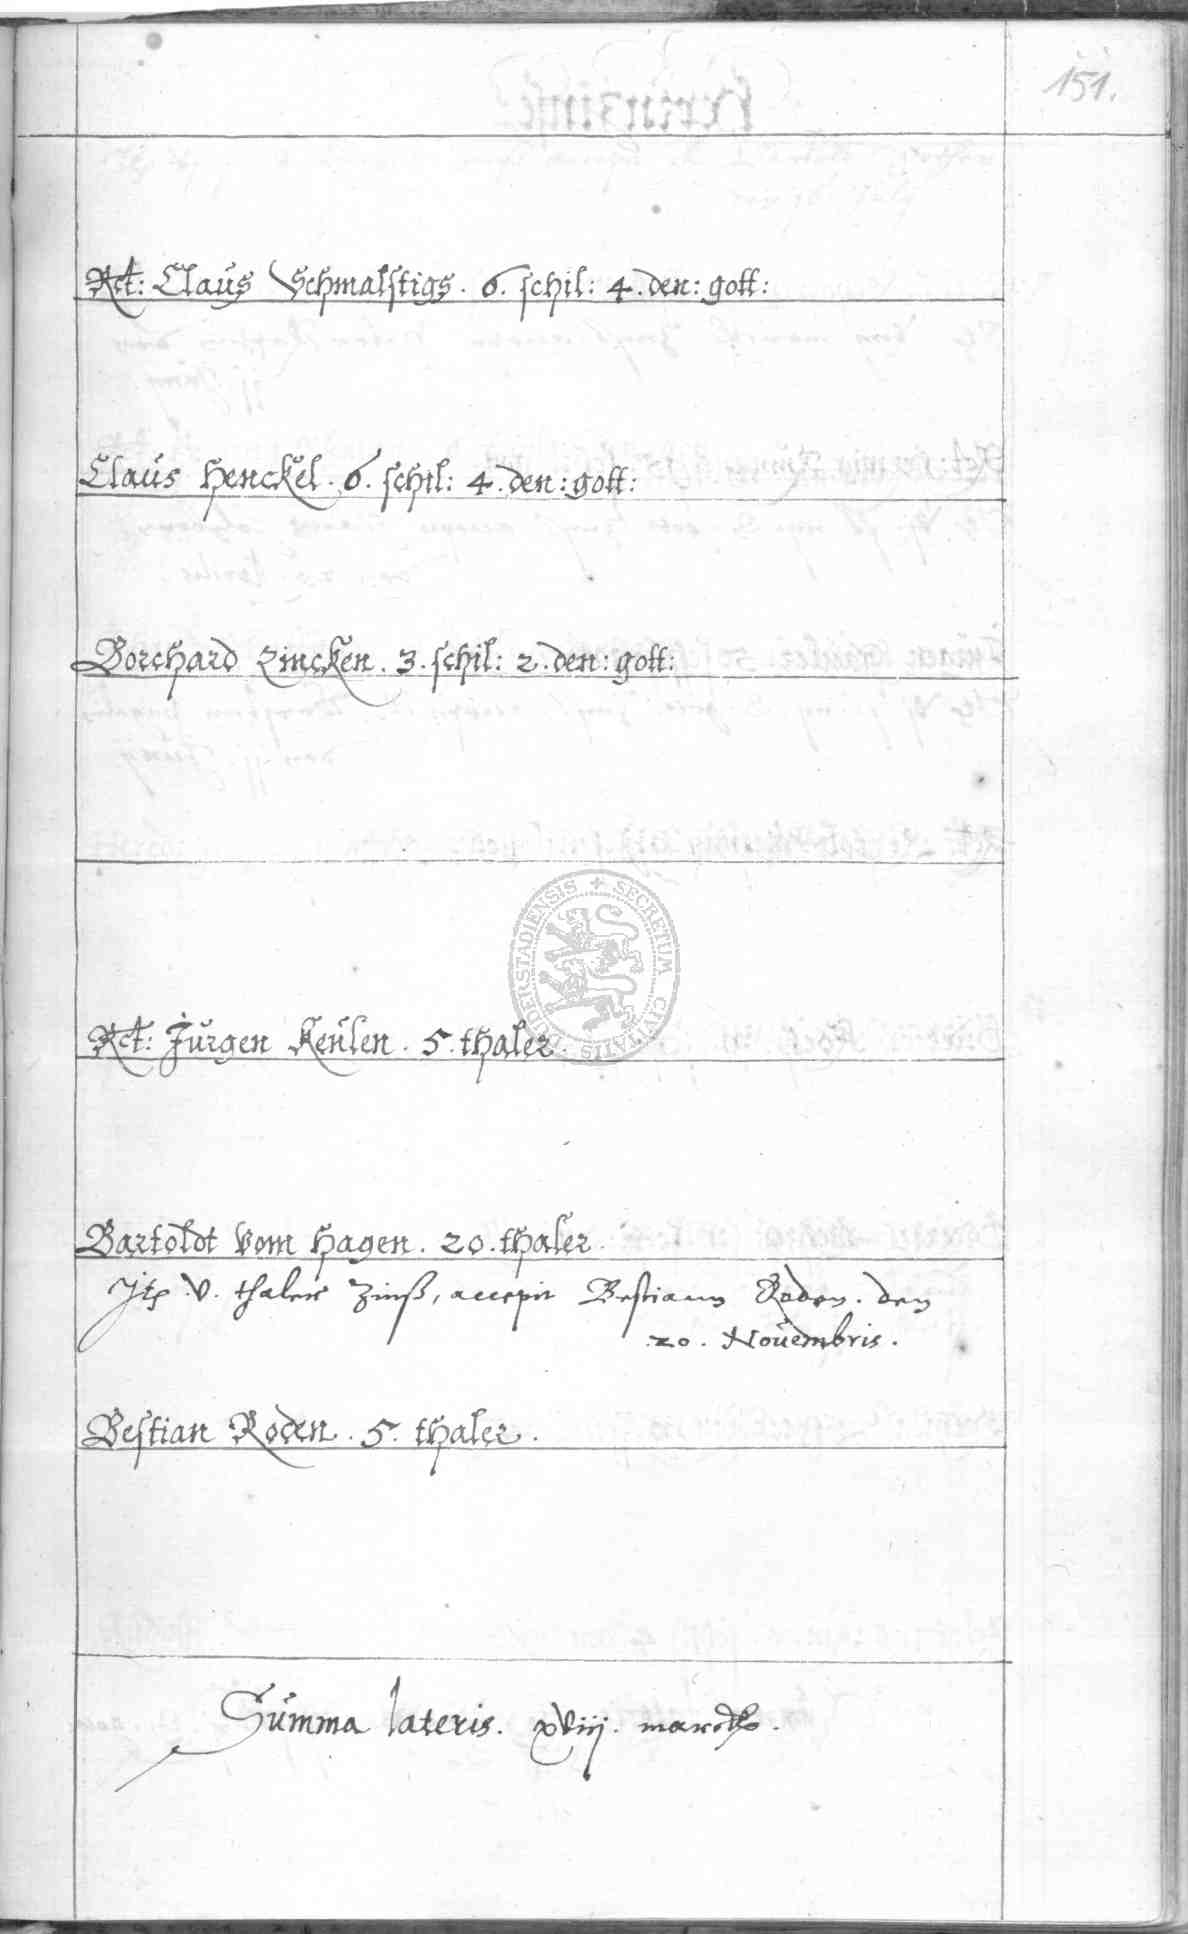 151.
Rct: Claus Schmalstigs. 6. schil: 4. den: gott:
Claus Henckel. 6. schil: 4. den: gott:
Borchard Zincken. 3. schil: 2. den: gott:
SECRETUM CIVITATIS DUDERSTADIENSIS
Rct: Jürgen Keulen. 5. thaler.
Bartoldt Vom Hagen. 20. thaler.
V. thaler Zinß, accepit Bestiann Roden. den
20. Nouembris.
Bestian Roden. 5. thaler.
Summa lateris. xViij. marck